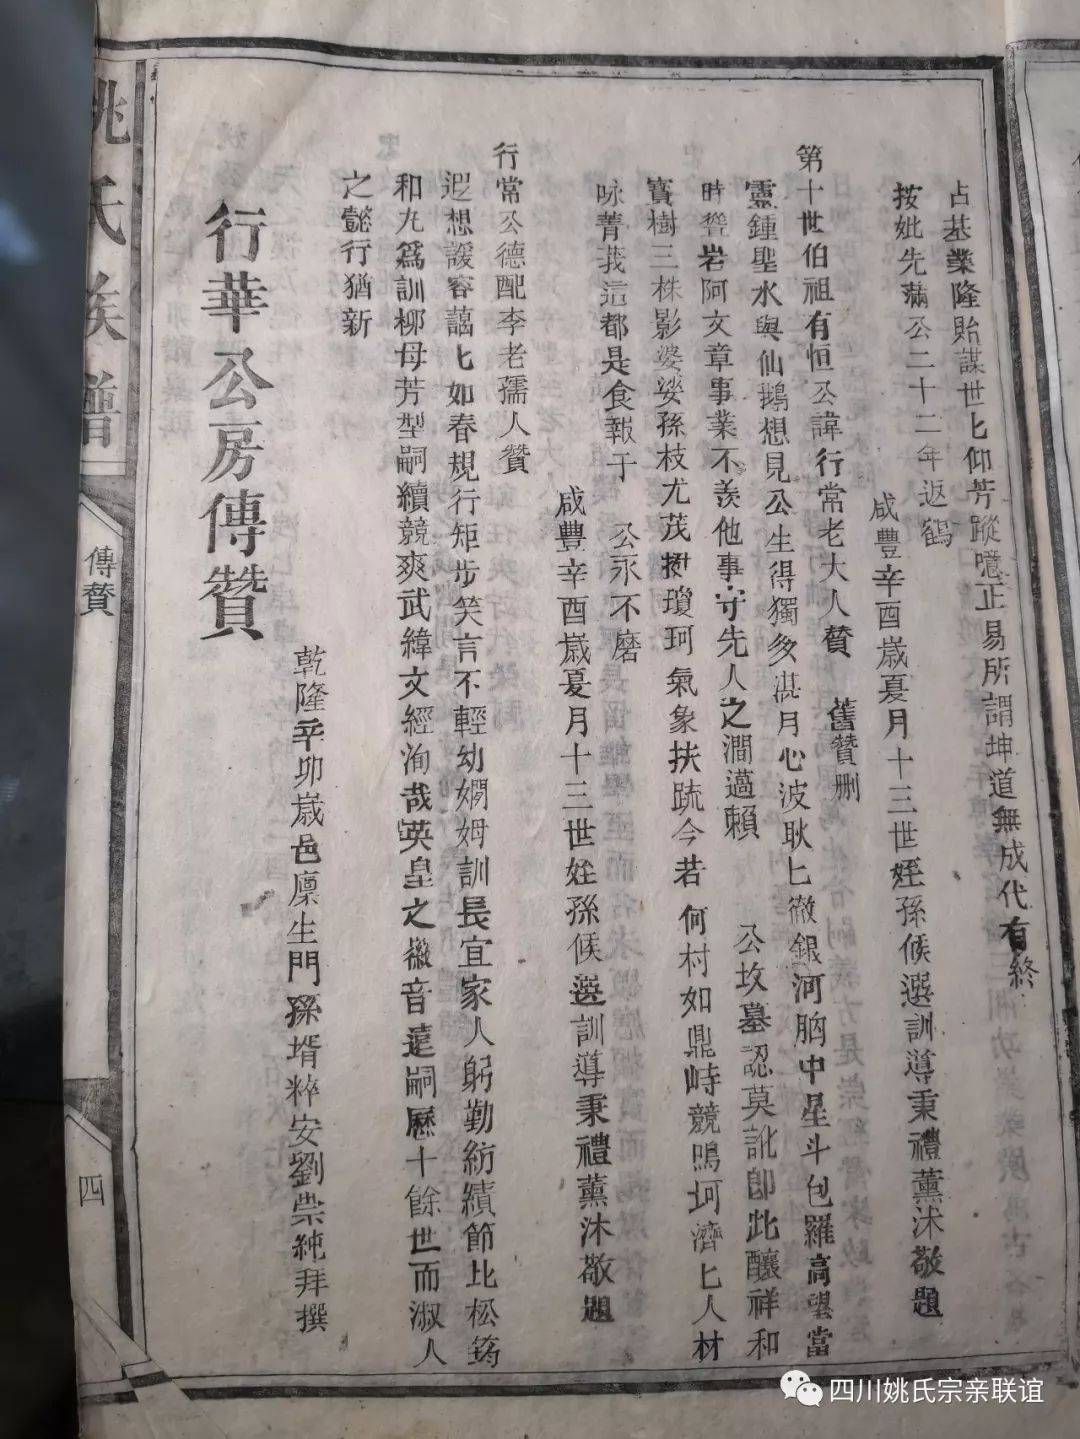 占基業隆貽謀世匕仰芳蹤噫正易所謂坤道無成代有終
按妣先滿公二十二年返鶴
咸豐辛酉歲夏月十三世姪孫候選訓導秉禮薰沐敬題
第十世伯祖有恒公諱行常老大人贊 舊贊刪
靈鍾聖水與仙鵝想見公生得獨多湛月心波耿匕徹銀河胸中星斗包羅高望當
時聳岩阿文章事業不羨他事守先人之澗薖賴 公坟墓認莫訛即此釀祥和
寶樹三株影婆娑孫枝尤茂挺瓊珂氣象扶疏今若何村如鼎峙競鳴珂濟匕人材
咏菁莪這都是食報于 公永不磨
咸豐辛酉歲夏月十三世姪孫候選訓導秉禮薰沐敬題
行常公德配李老孺人贊
遐想諼容藹匕如春規行矩步笑言不輕幼嫺姆訓長宜家人躬勤紡績節比松筠
和丸爲訓柳母芳型嗣續競爽武緯文經洵哉英皇之徽音遠嗣歷十餘世而淑人
之懿行猶新
行華公房傳贊
乾隆辛卯歲邑廪生門孫壻粹安劉崇純拜撰
姚氏族譜
傳贊
四
四川姚氏宗亲联谊